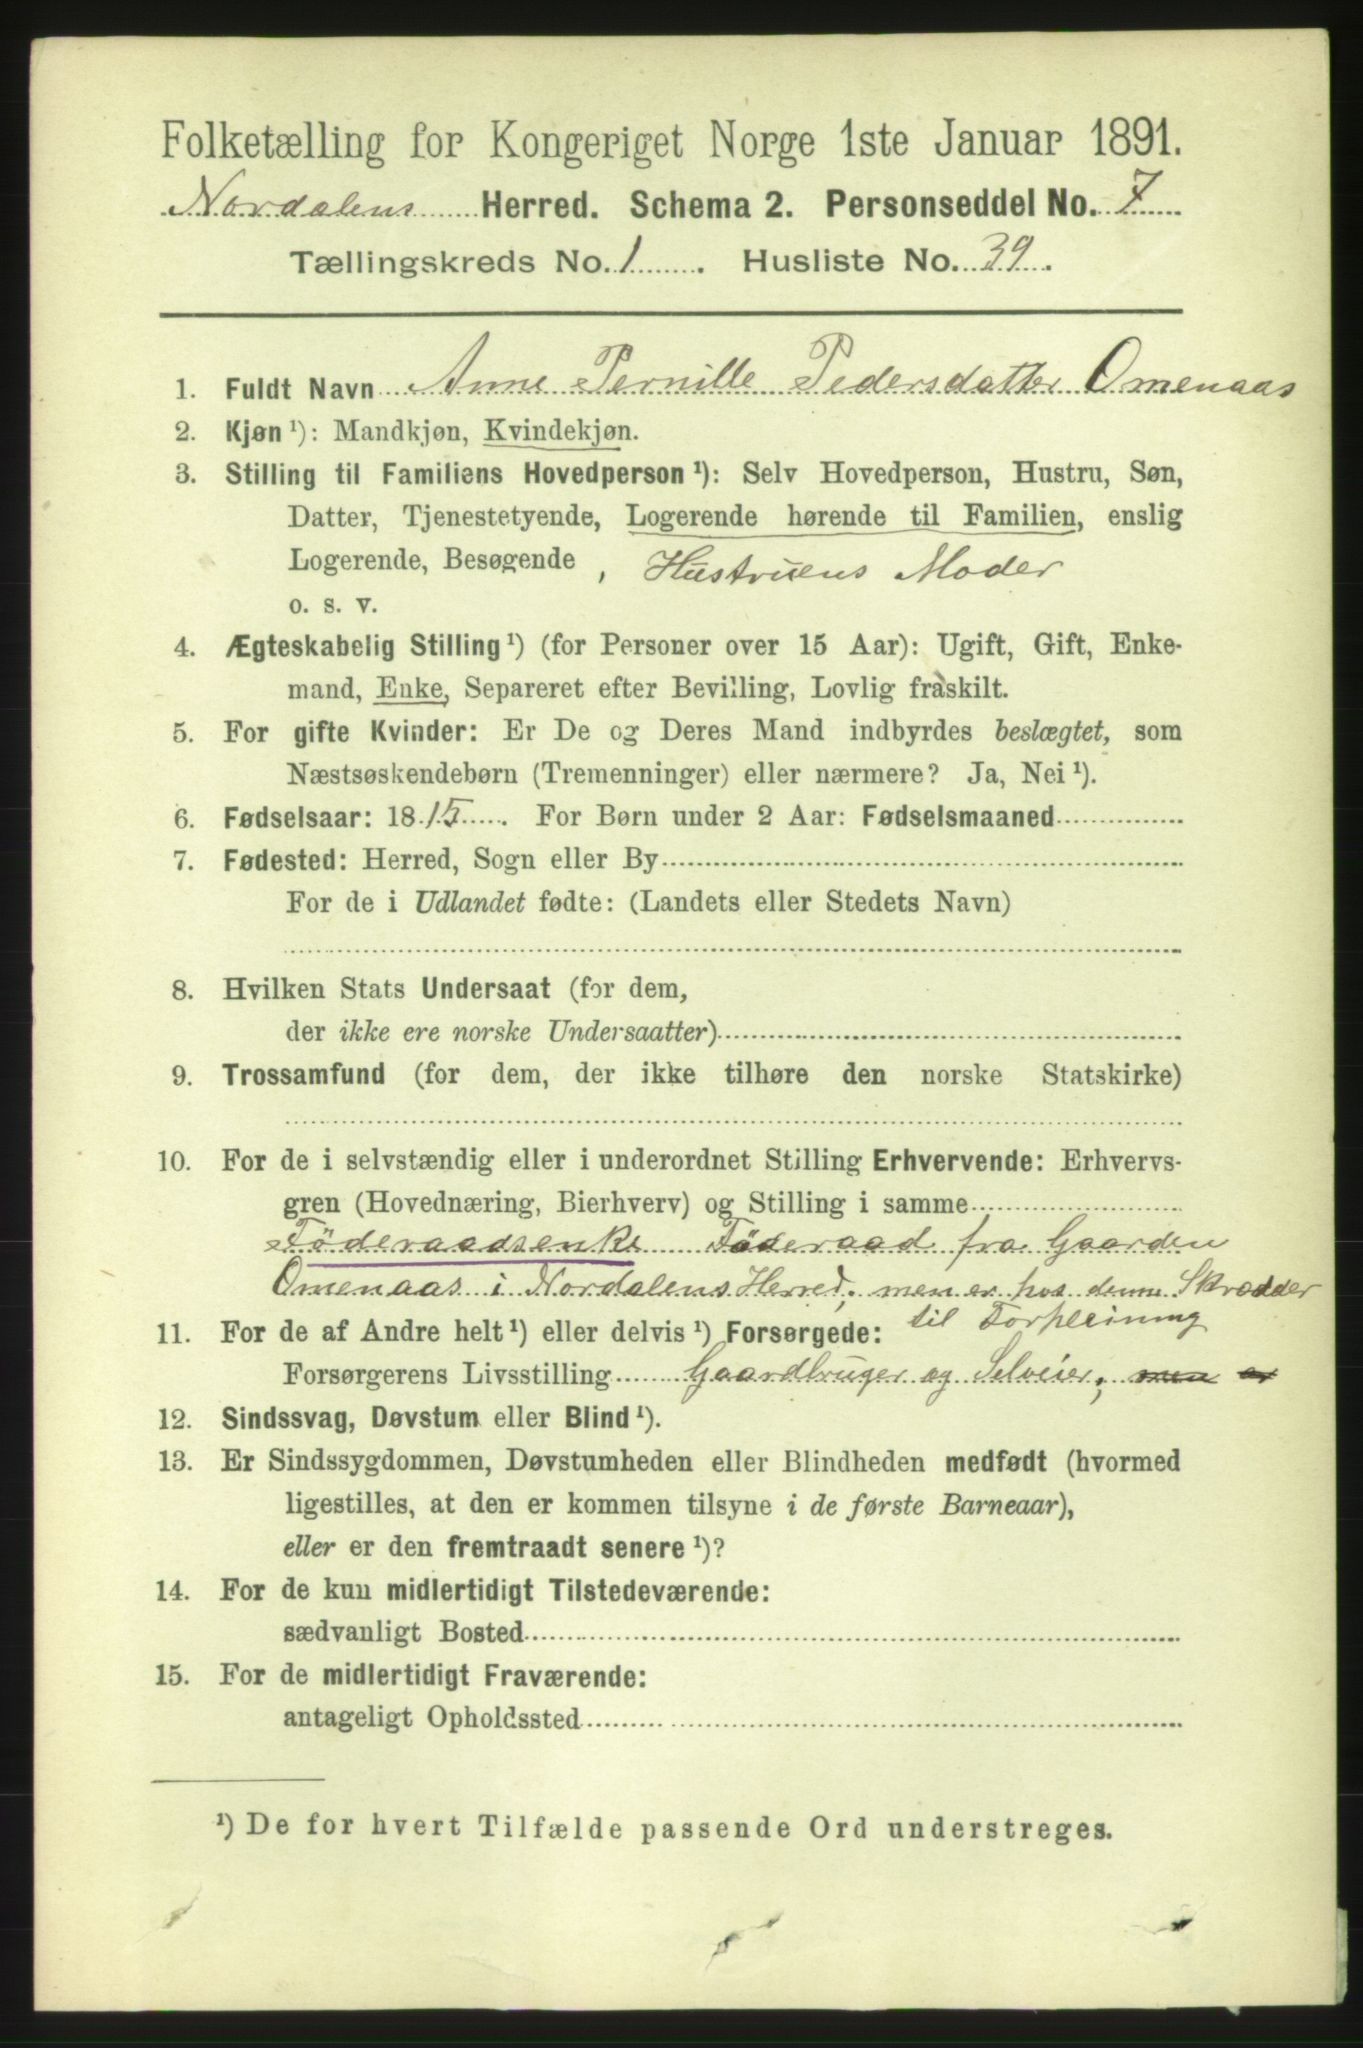 Folketælling for Kongeriget Norge 1ste Januar 1891.
Nordalens Herred. Schema 2. Personseddel No. 7
Tællingskreds No. 1. Husliste No. 39.
1. Fuldt Navn Anne Pernille Pedersdatter Omenaas
2. Kjøn¹): Mandkjøn, Kvindekjøn.
3. Stilling til Familiens Hovedperson¹): Selv Hovedperson, Hustru, Søn,
Datter, Tjenestetyende, Logerende hørende til Familien, enslig
Logerende, Besøgende, Hustruens Moder
o. s. v.
4. Ægteskabelig Stilling¹) (for Personer over 15 Aar): Ugift, Gift, Enke-
mand, Enke, Separeret efter Bevilling, Lovlig fraskilt.
5. For gifte Kvinder: Er De og Deres Mand indbyrdes beslægtet, som
Næstsøskendebørn (Tremenninger) eller nærmere? Ja, Nei¹).
6. Fødselsaar: 1815. For Børn under 2 Aar: Fødselsmaaned
7. Fødested: Herred, Sogn eller By
For de i Udlandet fødte: (Landets eller Stedets Navn)
8. Hvilken Stats Undersaat (for dem,
der ikke ere norske Undersaatter)
9. Trossamfund (for dem, der ikke tilhøre den norske Statskirke)
10. For de i selvstændig eller i underordnet Stilling Erhvervende: Erhvervs-
gren (Hovednæring, Bierhverv) og Stilling i samme
Föderaadsenke Föderaad fra Gaarden
Omenaas i Nordalens Herred, men er hos denne Skrædder
til Forpleining
11. For de af Andre helt¹) eller delvis¹) Forsørgede:
Forsørgerens Livsstilling Gaardbruger og Selveier, men er
12. Sindssvag, Døvstum eller Blind¹).
13. Er Sindssygdommen, Døvstumheden eller Blindheden medfødt (hvormed
ligestilles, at den er kommen tilsyne i de første Barneaar),
eller er den fremtraadt senere¹)?
14. For de kun midlertidigt Tilstedeværende:
sædvanligt Bosted
15. For de midlertidigt Fraværende:
antageligt Opholdssted
¹) De for hvert Tilfælde passende Ord understreges.